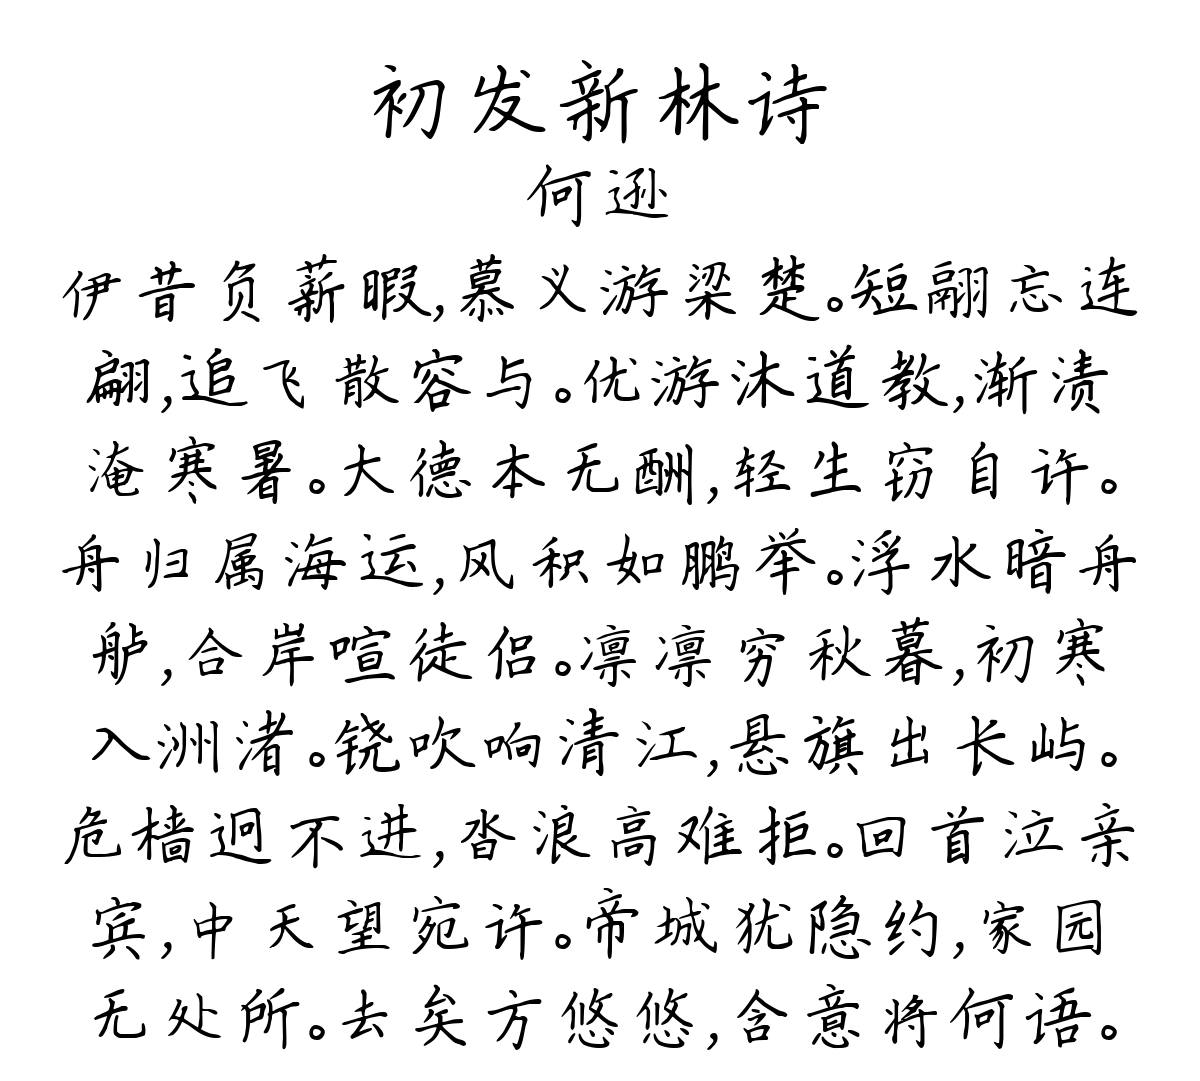 初发新林诗
何逊
伊昔负薪暇,慕义游梁楚。短翮忘连
翩,追飞散容与。优游沐道教,渐渍
淹寒暑。大德本无酬,轻生窃自许。
舟归属海运,风积如鹏举。浮水暗舟
舻,合岸喧徒侣。凛凛穷秋暮,初寒
入洲渚。铙吹响清江,悬旗出长屿。
危樯迥不进,沓浪高难拒。回首泣亲
宾,中天望宛许。帝城犹隐约,家园
无处所。去矣方悠悠,含意将何语。